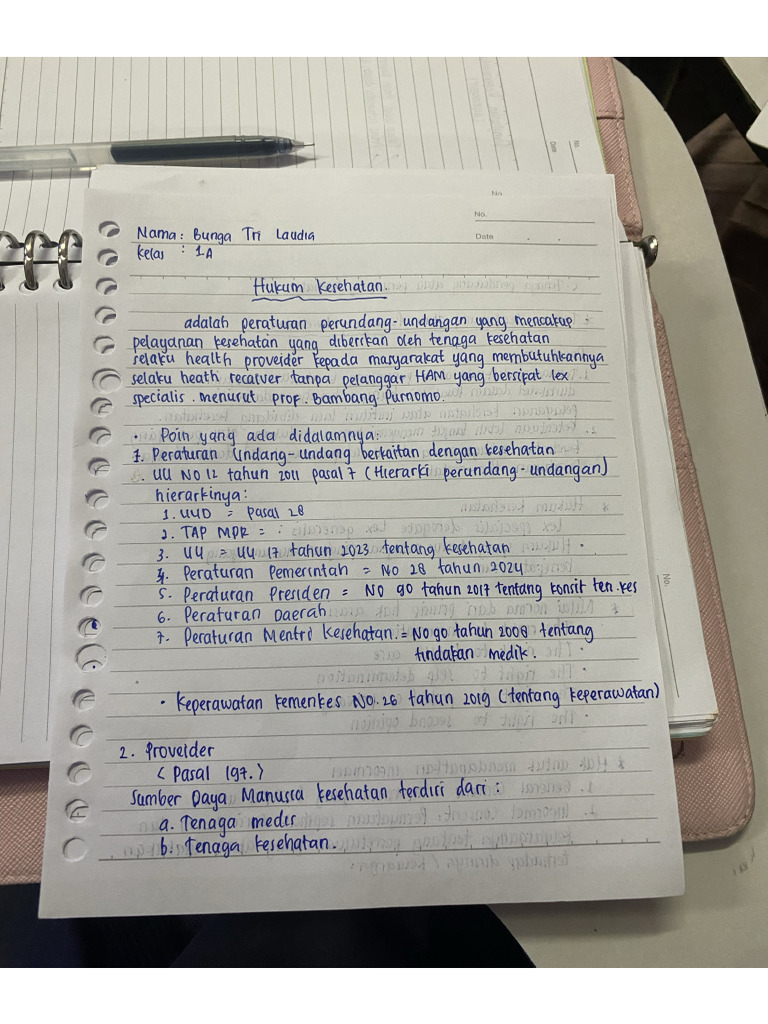 No
No.
Date
Nama: Bunga Tri Laudia
Kelas : 1A
Hukum Kesehatan.
adalah peraturan perundang-undangan yang mencakup
pelayanan kesehatan yang diberikan oleh tenaga kesehatan
selaku health proveider kepada masyarakat yang membutuhkannya
selaku heath recaiver tanpa pelanggar HAM yang bersifat lex
specialis. menurut prof. Bambang Purnomo.
• Poin yang ada didalamnya:
1. Peraturan Undang-undang berkaitan dengan kesehatan
. UU NO 12 tahun 2011 pasal 7 (Hierarki perundang-undangan)
hierarkinya:
1. UUD = pasal 28
2. TAP MPR =
3. UU = UU 17 tahun 2023 tentang kesehatan
4. Peraturan Pemerintah = NO 28 tahun 2024
5. Peraturan Presiden = NO 90 tahun 2017 tentang konsil ten.kes
6. Peraturan Daerah
7. Peraturan Mentri Kesehatan = No 90 tahun 2008 tentang
tindakan medik.
• Keperawatan kemenkes NO.26 tahun 2019 (tentang keperawatan)
2. Proveider
< Pasal 197. >
Sumber Daya Manusia kesehatan terdiri dari :
a. Tenaga medis
b. Tenaga kesehatan.